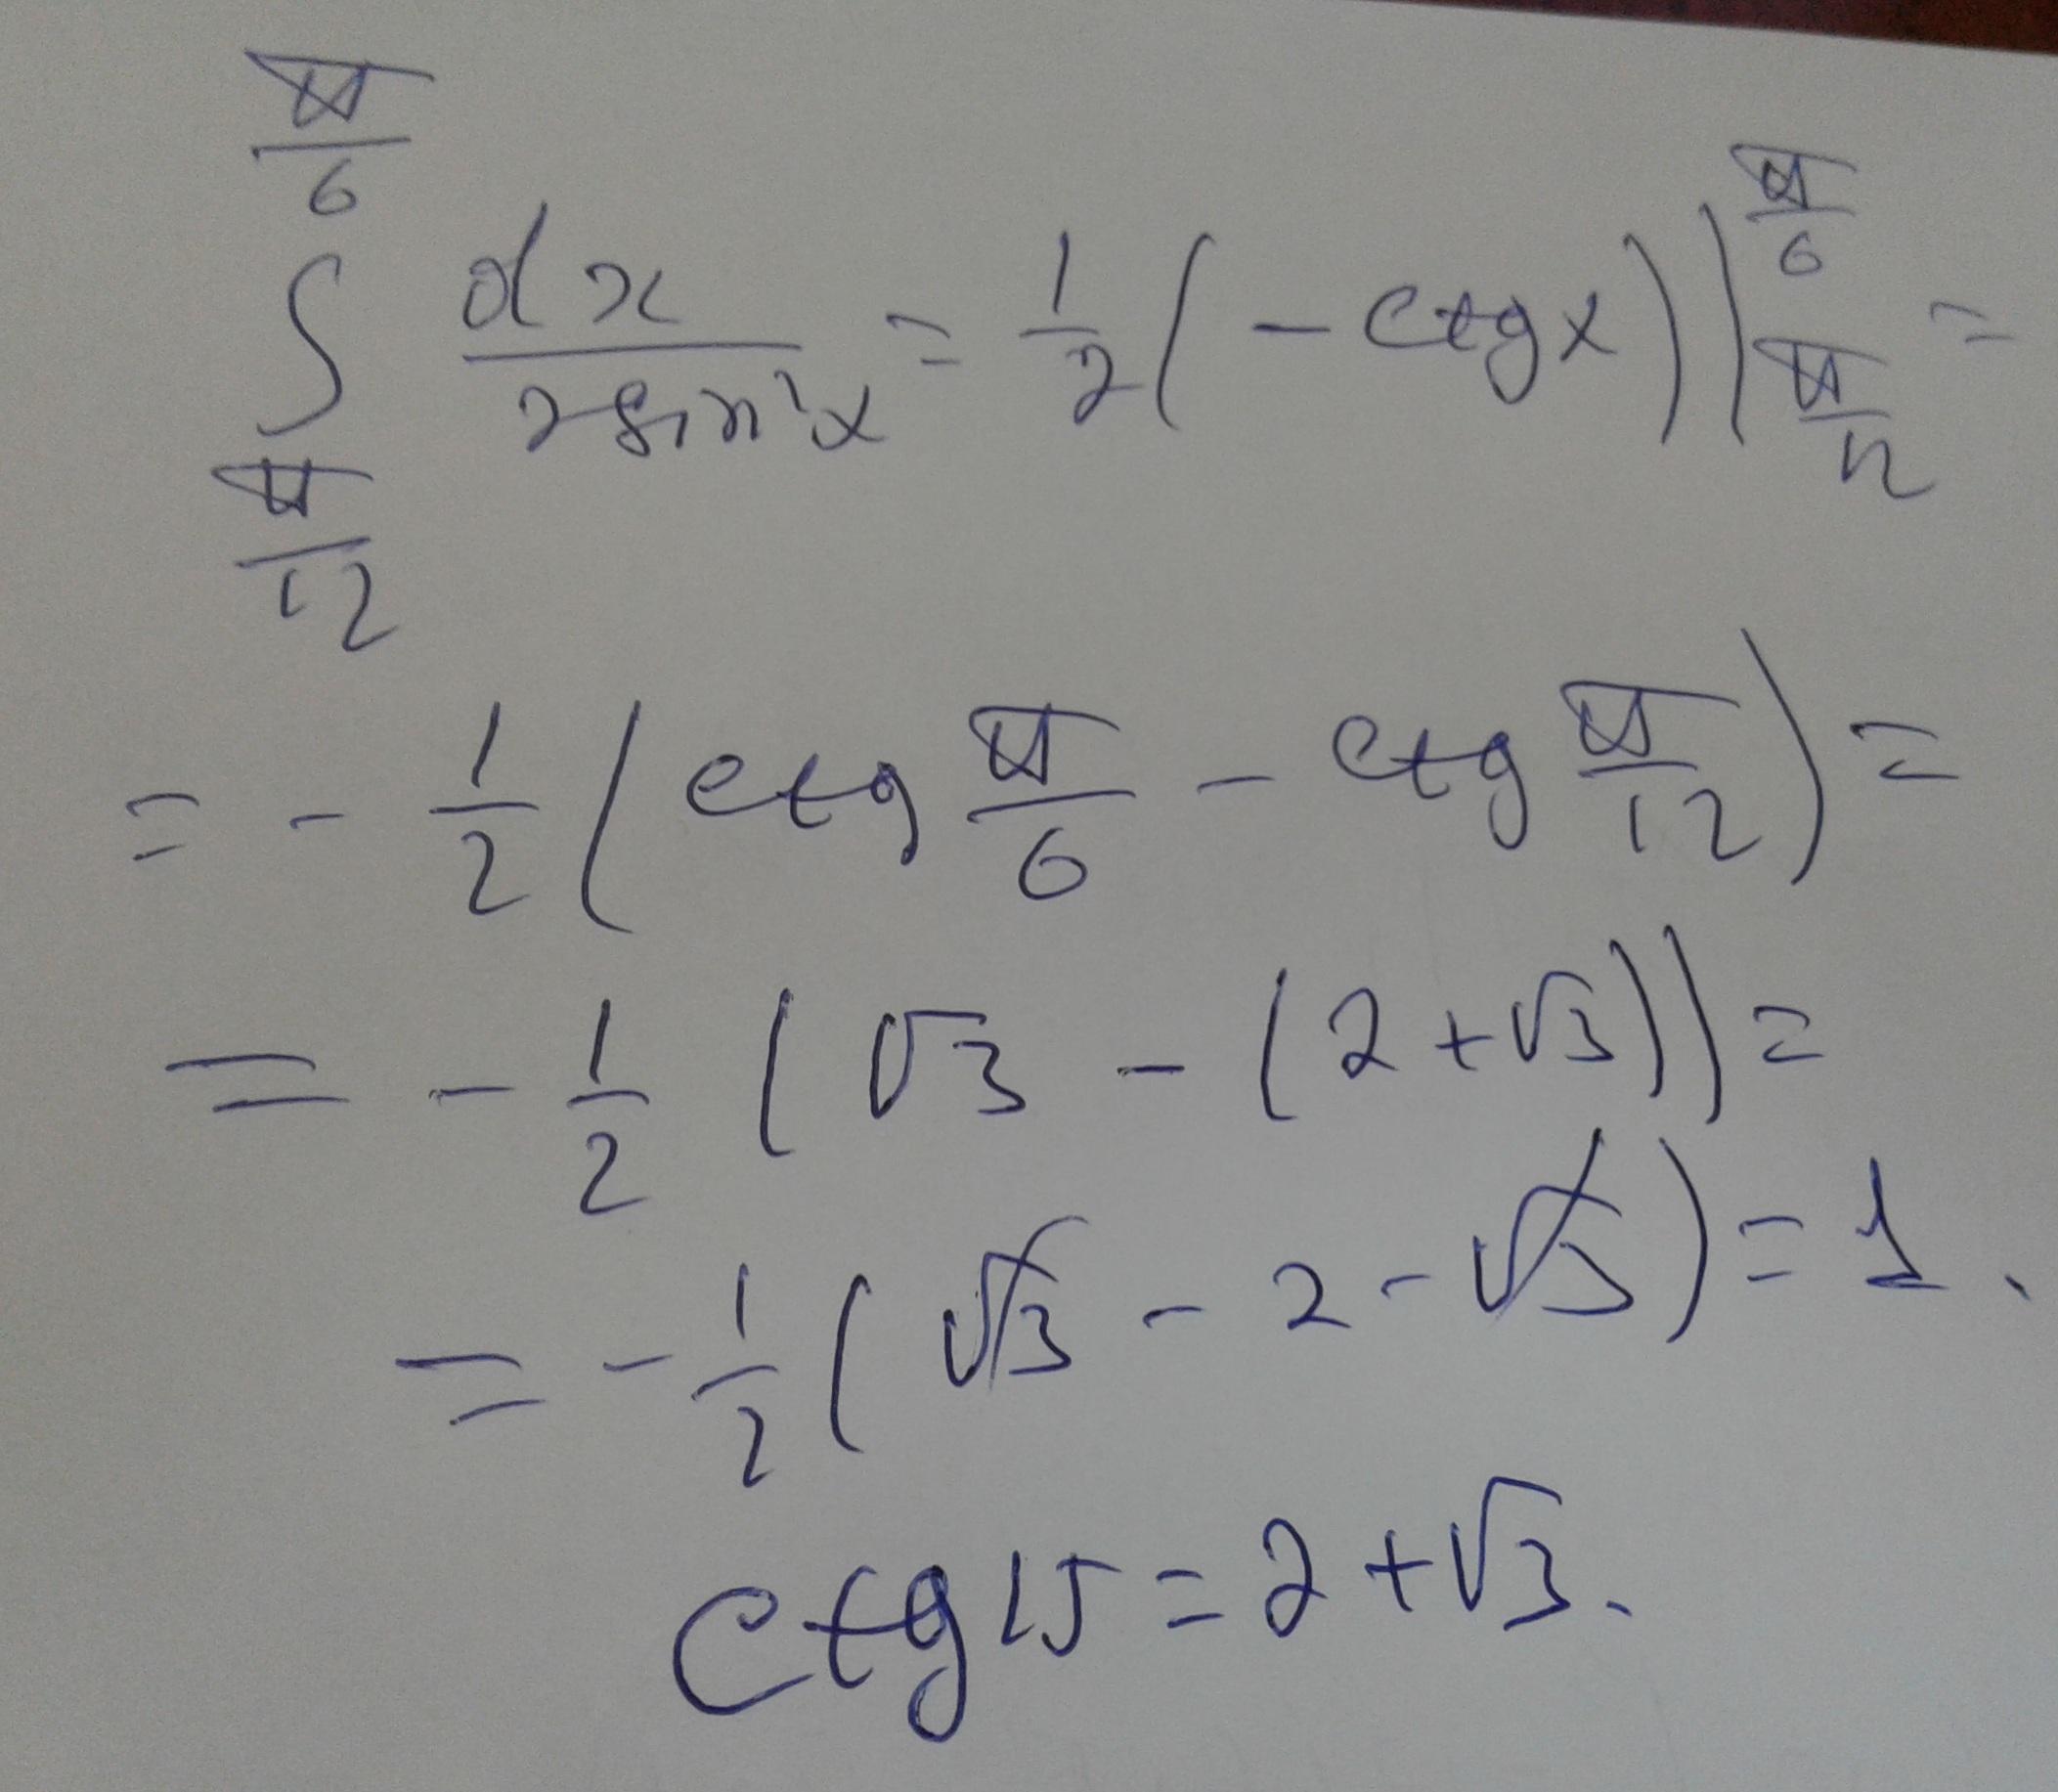 ∫_{π/12}^{π/6} dx/(2sin²x) = 1/2 (-ctgx)|_{π/12}^{π/6} =
= - 1/2 (ctg π/6 - ctg π/12) =
= - 1/2 (√3 - (2+√3)) =
= - 1/2 (√3 - 2 - √3) = 1.
ctg15 = 2+√3.